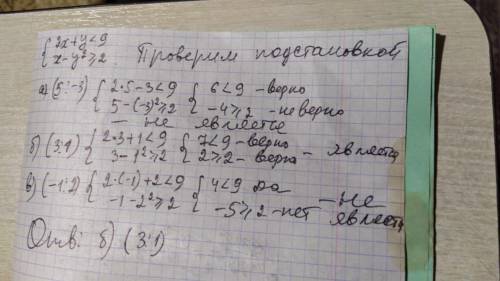 {2x+y<9
{x-y²≥2. Проверим подстановкой
а) (5;-3) {2·5-3<9 {6<9 - верно
{5-(-3)²≥2 {-4≥2 - неверно
— не является
б) (3;1) {2·3+1<9 {7<9 - верно
{3-1²≥2 {2≥2 - верно - является
в) (-1;2) {2·(-1)+2<9 {4<9 да
{-1-2²≥2 {-5≥2 - нет - не является
Отв: б) (3;1)